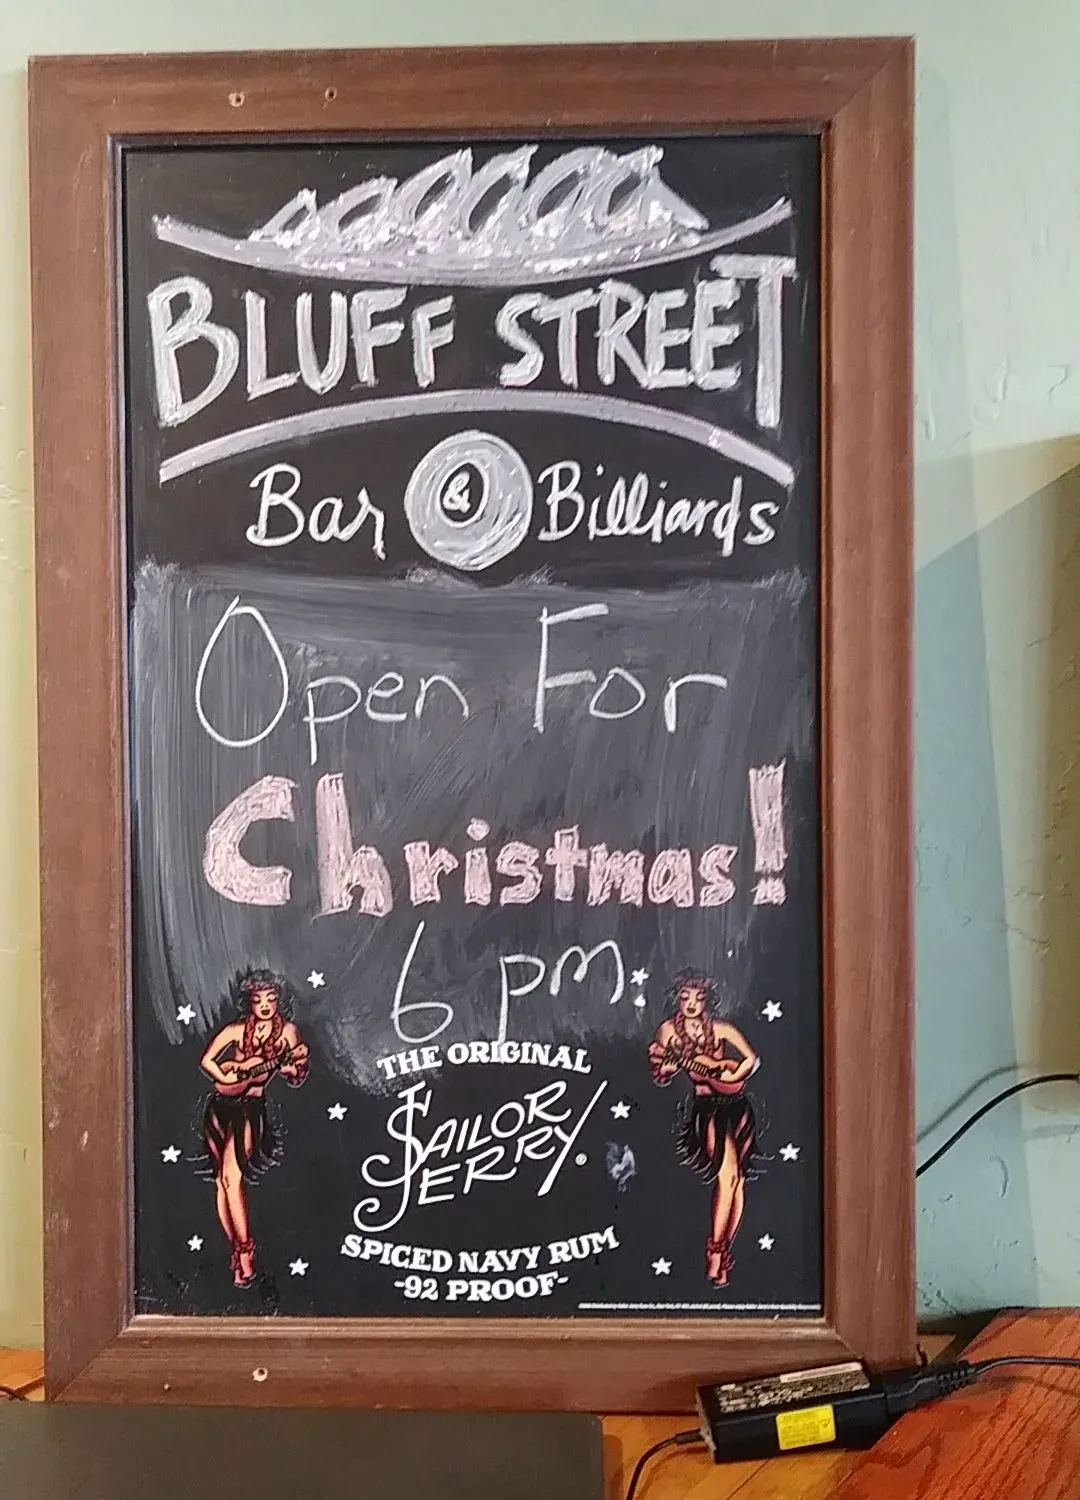 BLUFF STREET
Bar & Billiards
Open For
Christmas!
6 pm.
THE ORIGINAL
SAILOR
JERRY®
SPICED NAVY RUM
-92 PROOF-